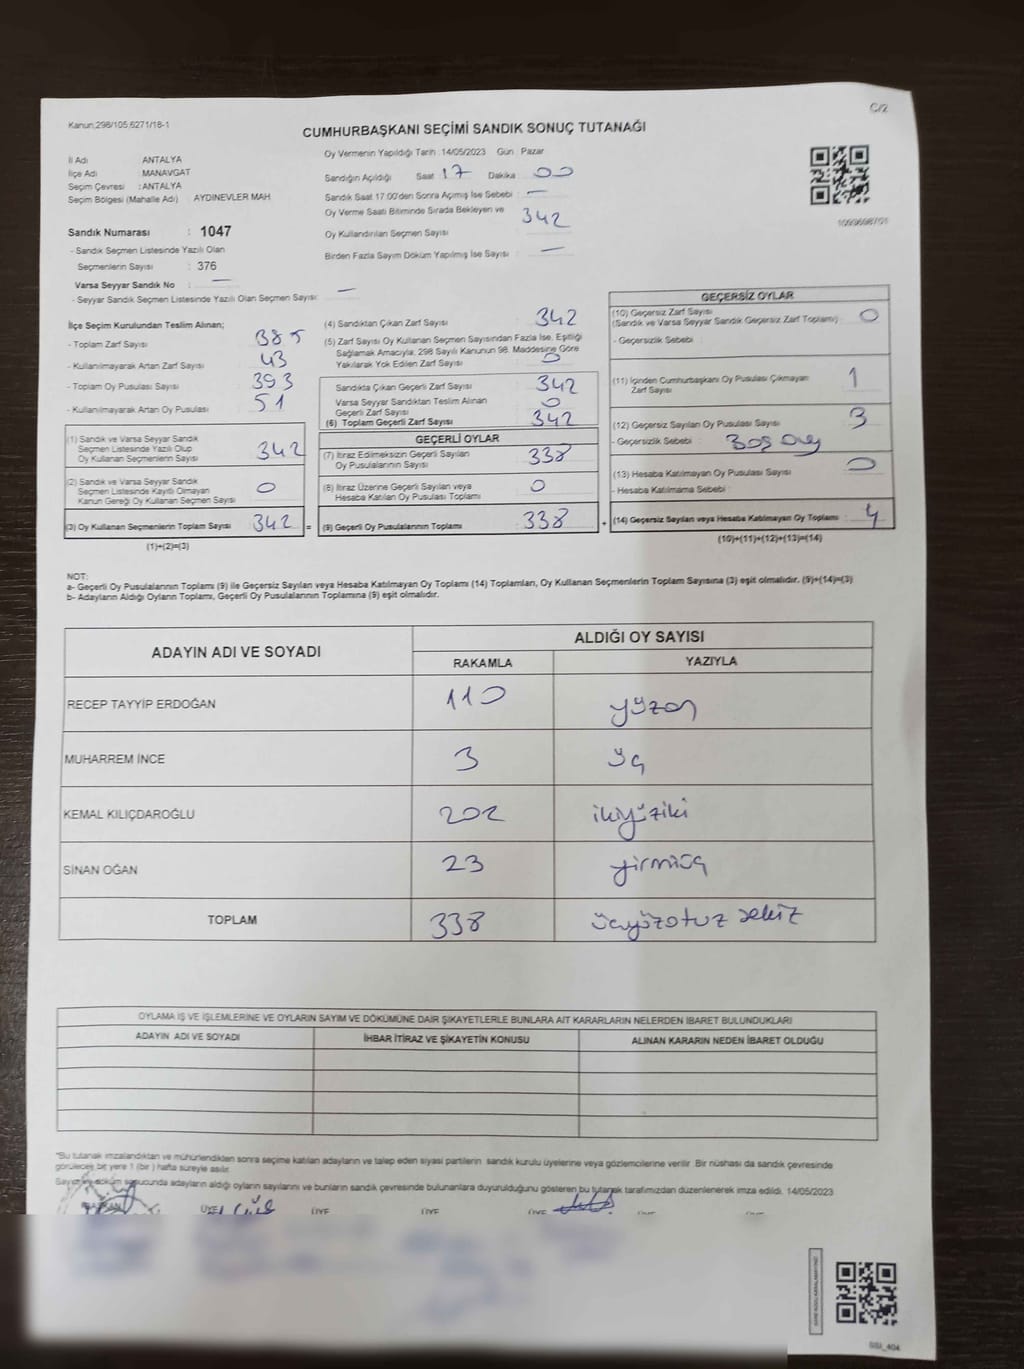 C/2
Kanun:298/105;6271/18-1
CUMHURBAŞKANI SEÇİMİ SANDIK SONUÇ TUTANAĞI
İl Adı ANTALYA
İlçe Adı MANAVGAT
Seçim Çevresi : ANTALYA
Seçim Bölgesi (Mahalle Adı) AYDINEVLER MAH
Sandık Numarası : 1047
- Sandık Seçmen Listesinde Yazılı Olan
Seçmenlerin Sayısı : 376
Varsa Seyyar Sandık No : —
- Seyyar Sandık Seçmen Listesinde Yazılı Olan Seçmen Sayısı: —
Oy Vermenin Yapıldığı Tarih :14/05/2023 Gün : Pazar
Sandığın Açıldığı Saat 17 Dakika : 00
Sandık Saat 17:00'den Sonra Açımış İse Sebebi : —
Oy Verme Saati Bitiminde Sırada Bekleyen ve
Oy Kullandırılan Seçmen Sayısı : 342
Birden Fazla Sayım Döküm Yapılmış İse Sayısı : —
1099698701
İlçe Seçim Kurulundan Teslim Alınan;
- Toplam Zarf Sayısı : 385
- Kullanılmayarak Artan Zarf Sayısı : 43
- Toplam Oy Pusulası Sayısı : 393
- Kullanılmayarak Artan Oy Pusulası : 51
(1) Sandık ve Varsa Seyyar Sandık
Seçmen Listesinde Yazılı Olup
Oy Kullanan Seçmenlerin Sayısı : 342
(2) Sandık ve Varsa Seyyar Sandık
Seçmen Listesinde Kayıtlı Olmayan
Kanun Gereği Oy Kullanan Seçmen Sayısı : 0
(3) Oy Kullanan Seçmenlerin Toplam Sayısı : 342 =
(1)+(2)=(3)
(4) Sandıktan Çıkan Zarf Sayısı : 342
(5) Zarf Sayısı Oy Kullanan Seçmen Sayısından Fazla İse, Eşitliği
Sağlamak Amacıyla, 298 Sayılı Kanunun 98. Maddesine Göre
Yakılarak Yok Edilen Zarf Sayısı : 0
Sandıkta Çıkan Geçerli Zarf Sayısı : 342
Varsa Seyyar Sandıktan Teslim Alınan
Geçerli Zarf Sayısı : 0
(6) Toplam Geçerli Zarf Sayısı : 342
GEÇERLİ OYLAR
(7) İtiraz Edilmeksizin Geçerli Sayılan
Oy Pusulalarının Sayısı : 338
(8) İtiraz Üzerine Geçerli Sayılan veya
Hesaba Katılan Oy Pusulası Toplamı : 0
(9) Geçerli Oy Pusulalarının Toplamı : 338 +
GEÇERSİZ OYLAR
(10) Geçersiz Zarf Sayısı
(Sandık ve Varsa Seyyar Sandık Geçersiz Zarf Toplamı) : 0
- Geçersizlik Sebebi :
(11) İçinden Cumhurbaşkanı Oy Pusulası Çıkmayan
Zarf Sayısı : 1
(12) Geçersiz Sayılan Oy Pusulası Sayısı : 3
- Geçersizlik Sebebi : Boş Oy
(13) Hesaba Katılmayan Oy Pusulası Sayısı : 0
- Hesaba Katılmama Sebebi :
(14) Geçersiz Sayılan veya Hesaba Katılmayan Oy Toplamı : 4
(10)+(11)+(12)+(13)=(14)
NOT:
a- Geçerli Oy Pusulalarının Toplamı (9) ile Geçersiz Sayılan veya Hesaba Katılmayan Oy Toplamı (14) Toplamları, Oy Kullanan Seçmenlerin Toplam Sayısına (3) eşit olmalıdır. (9)+(14)=(3)
b- Adayların Aldığı Oyların Toplamı, Geçerli Oy Pusulalarının Toplamına (9) eşit olmalıdır.
ADAYIN ADI VE SOYADI ALDIĞI OY SAYISI
RAKAMLA YAZIYLA
RECEP TAYYİP ERDOĞAN 110 yüzon
MUHARREM İNCE 3 üç
KEMAL KILIÇDAROĞLU 202 ikiyüziki
SİNAN OĞAN 23 yirmiüç
TOPLAM 338 üçyüzotuz sekiz
OYLAMA İŞ VE İŞLEMLERİNE VE OYLARIN SAYIM VE DÖKÜMÜNE DAİR ŞİKAYETLERLE BUNLARA AİT KARARLARIN NELERDEN İBARET BULUNDUKLARI
ADAYIN ADI VE SOYADI İHBAR İTİRAZ VE ŞİKAYETİN KONUSU ALINAN KARARIN NEDEN İBARET OLDUĞU
*Bu tutanak imzalandıktan ve mühürlendikten sonra seçime katılan adayların ve talep eden siyasi partilerin sandık kurulu üyelerine veya gözlemcilerine verilir. Bir nüshası da sandık çevresinde
görülecek bir yere 1 (bir) hafta süreyle asılır.
Sayım ve döküm sonucunda adayların aldığı oyların sayılarını ve bunların sandık çevresinde bulunanlara duyurulduğunu gösteren bu tutanak tarafımızdan düzenlenerek imza edildi. 14/05/2023
BAŞKAN ÜYE ÜYE ÜYE ÜYE ÜYE ÜYE
SSI_404